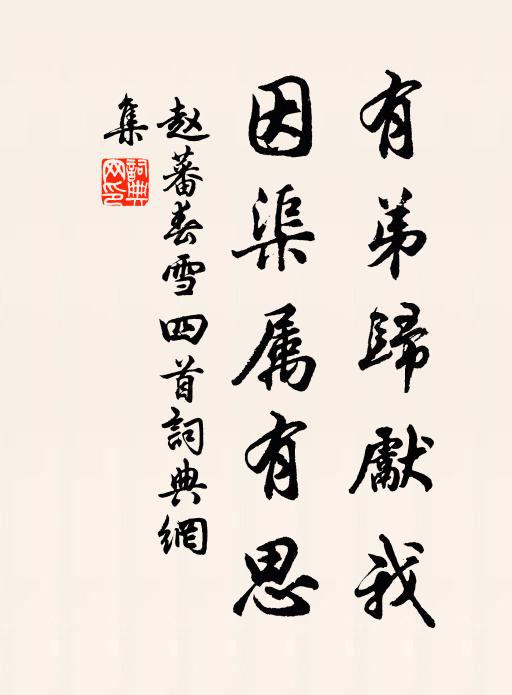 有弟歸獻我
因渠属有思
赵蕃春雪四首詞典網
集
詞典網印